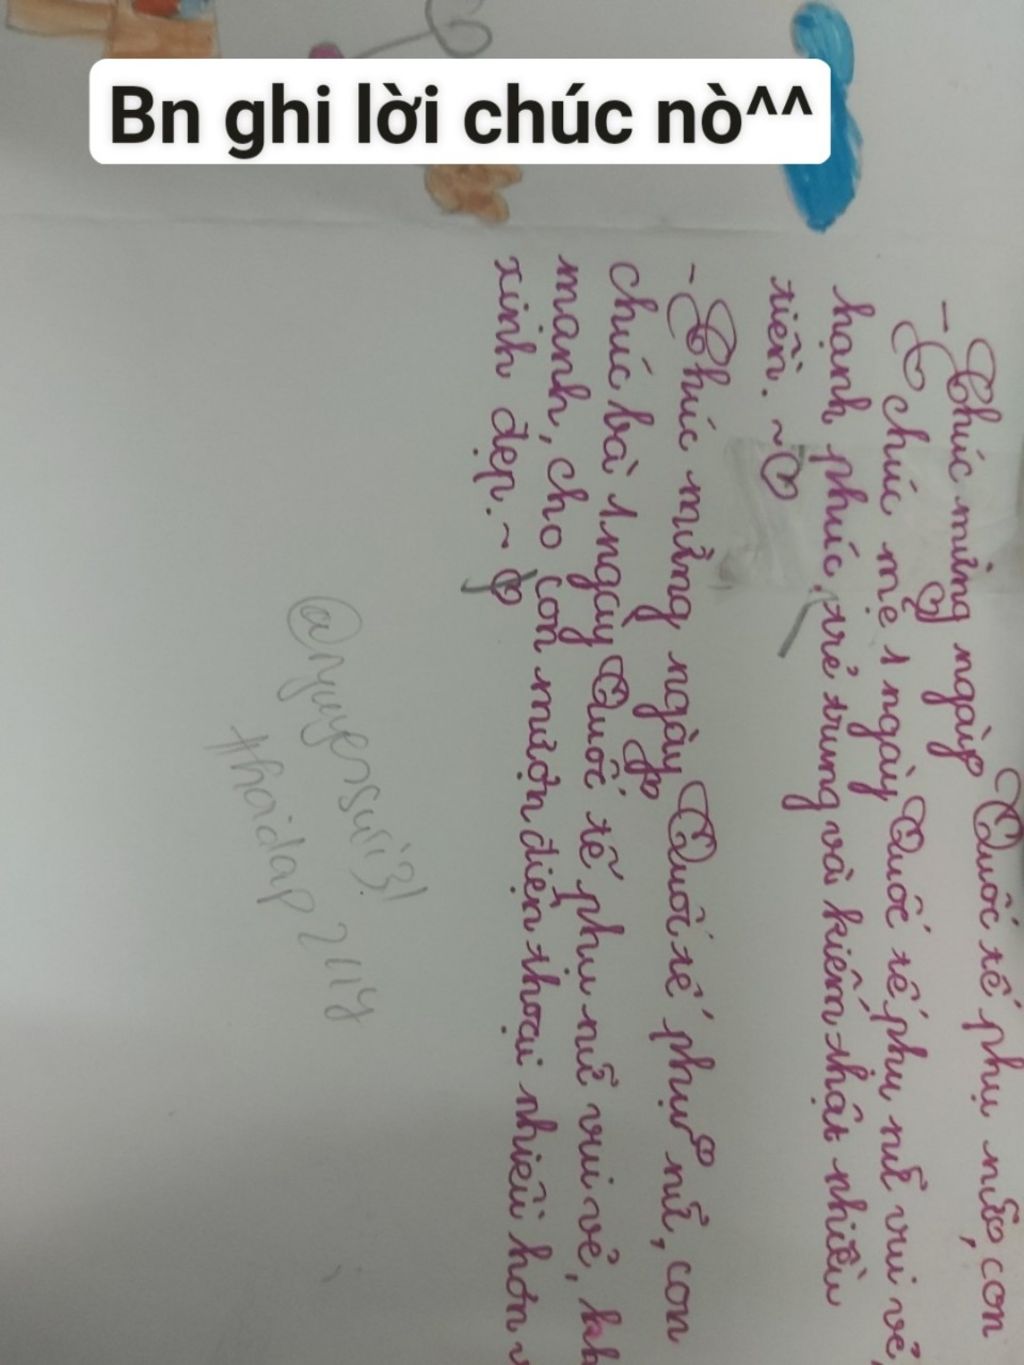 Bn ghi lời chúc nò^^
- Chúc mừng ngày Quốc tế phụ nữ, con
chúc mẹ 1 ngày Quốc tế phụ nữ vui vẻ,
hạnh phúc, trẻ trung và kiếm thật nhiều
tiền. ~♡
- Chúc mừng ngày Quốc tế phụ nữ, con
chúc bà 1 ngày Quốc tế phụ nữ vui vẻ,
mạnh, cho con mượn điện thoại nhiều hơn
xinh đẹp. ~♡